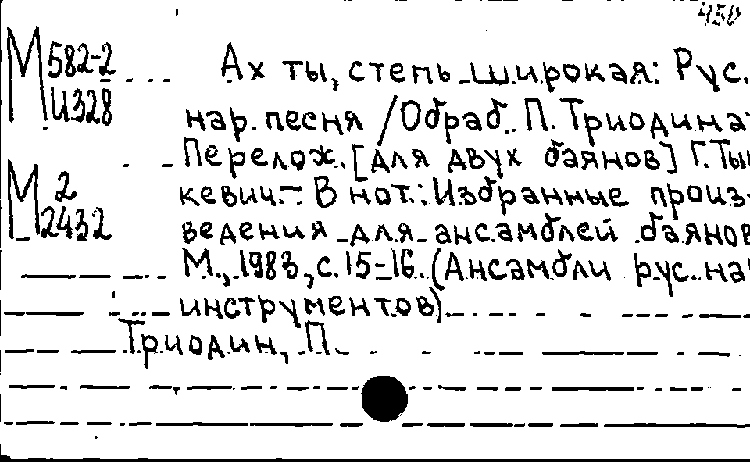 450
М 582-2 Ах ты, степь широкая: Рус.
И328
нар. песня / Обраб. П. Триодина
Перелож. [для двух баянов] Г. Тыш
М 2 кевич. - В нот.: Избранные произ-
2432 ведения для ансамблей баянов
М., 1983, с. 15-16. (Ансамбли рус. нар
инструментов).
Триодин, П.